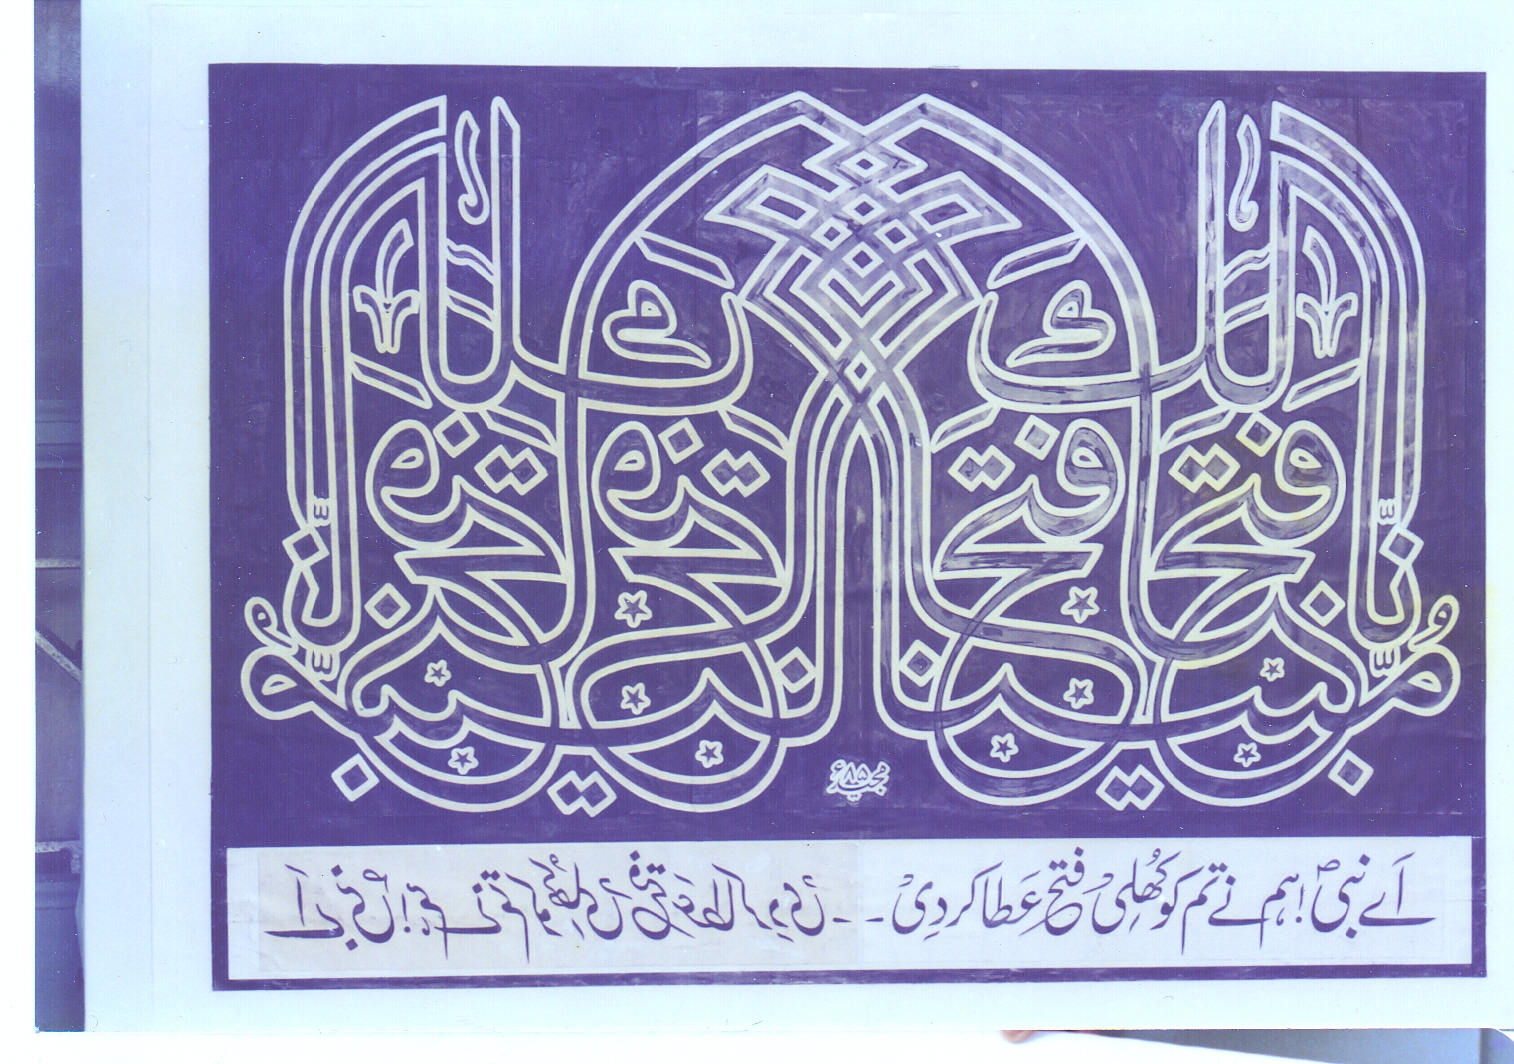 إِنَّا فَتَحْنَا لَكَ فَتْحًا مُبِينًا
٨٥ء
اَے نبیؐ! ہم نے تم کو کُھلی فتح عَطا کردِی